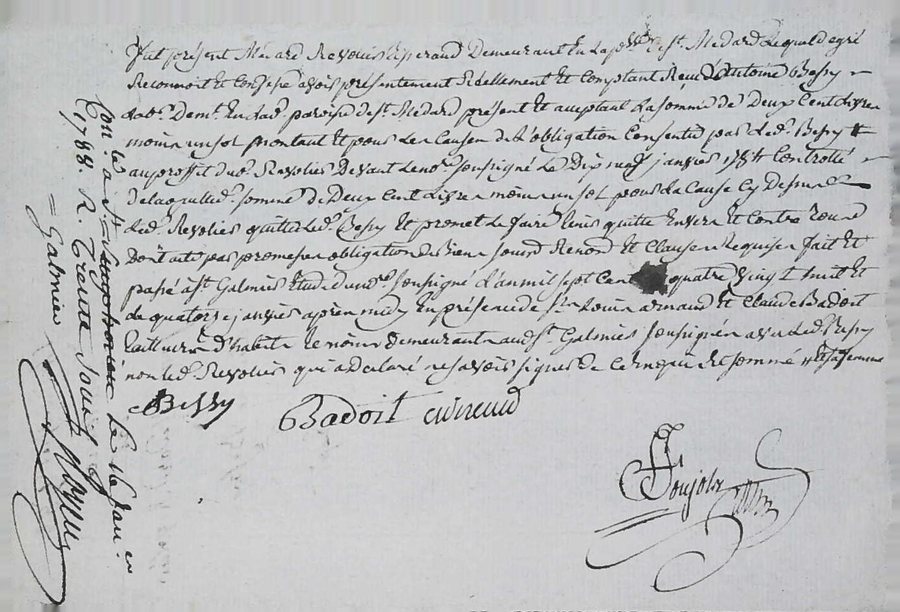 fut présent Médard Revolier tisserand Demeurant En la p.sse de St Medard Lequel de gré
Reconnoit et Confesse avoir présentement Réellement Et Comptant Reçu d'Antoine Bessy
lab.r Dem.t En lad. paroisse de St Medard présent Et acceptant La somme de Deux Cent Livres
moins un sol montant Et pour Les Causes de L'obligation Consentie par Led. Bessy
au proffit dud. Revolier Devant Le no.re soussigné Le Dix neuf janvier 1784 Controllé
De laquelle d. somme de Deux Cent Livres moins un sol pour La Cause Cy Dessus
Led. Revolier quitte Led. Bessy Et promet Le faire tenir quitte Envers Et Contre tous
Dont acte par promesse obligation de Biens soumis Renon.d Et Clauses Requises fait Et
passé a St Galmier Etude du no.re soussigné L'an mil sept Cent quatre Vingt huit Et
Le quatorze janvier après midy En présence de Sr Louis armand Et Claude Badoit
tailleurs D'habits témoins demeurant aud. St Galmier soussignés avec Led. Bessy
non Led. Revolier qui a déclaré ne savoir signer de Ce Enquis Et sommé Et sa femme
Bessy
Badoit
Con.lé a St
Galmier Le 16 Jan.er
1788. R. Trente sous